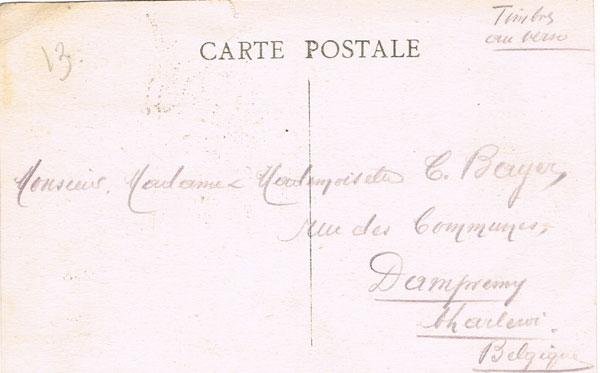 Timbres
au verso
13.
CARTE POSTALE
Monsieur, Madame & Mademoiselle C. Bayer,
rue des Communes,
Dampremy
Charleroi.
Belgique